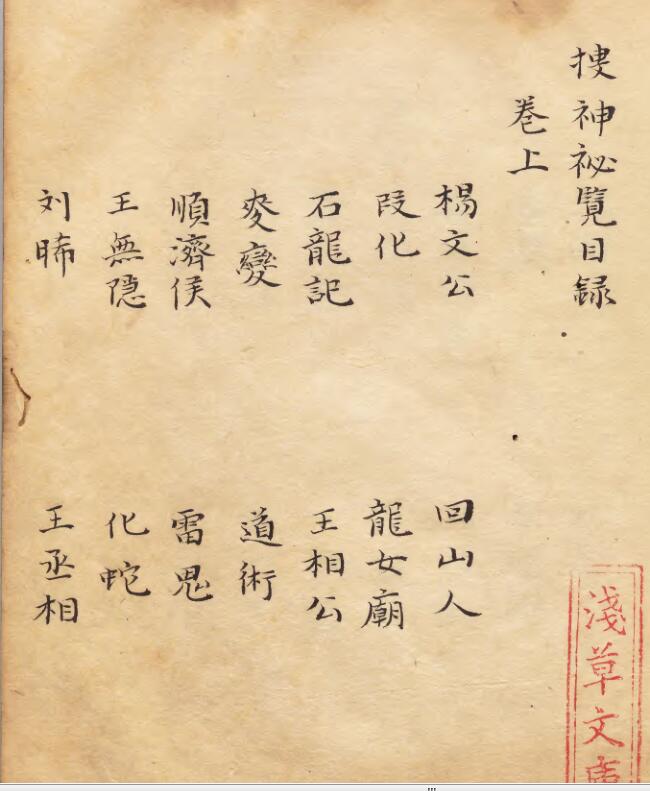 搜神祕覽目録
巻上
楊文公 回山人
段化 龍女廟
石龍記 王相公
麦變 道術
順濟侯 雷鬼
王無隠 化蛇
刘晞 王丞相
淺草文